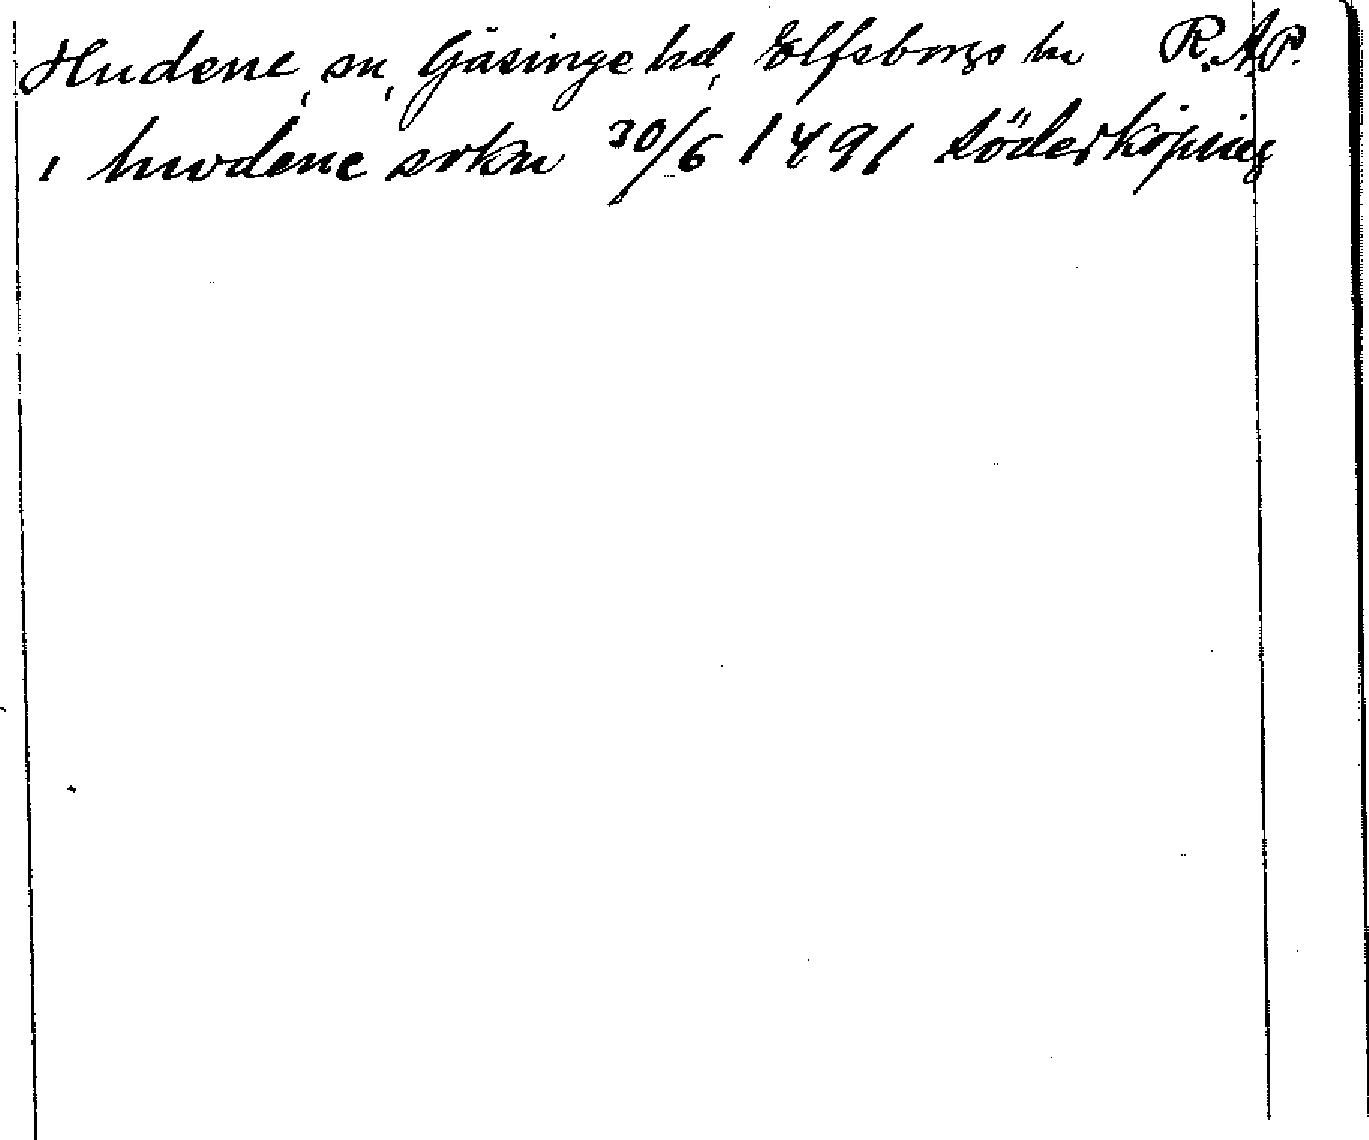 Hudene, sn, Gäsinge hd, Elfsborgs ln R.A.P.
i hwdene sokn 30/6 1491 Söderköping